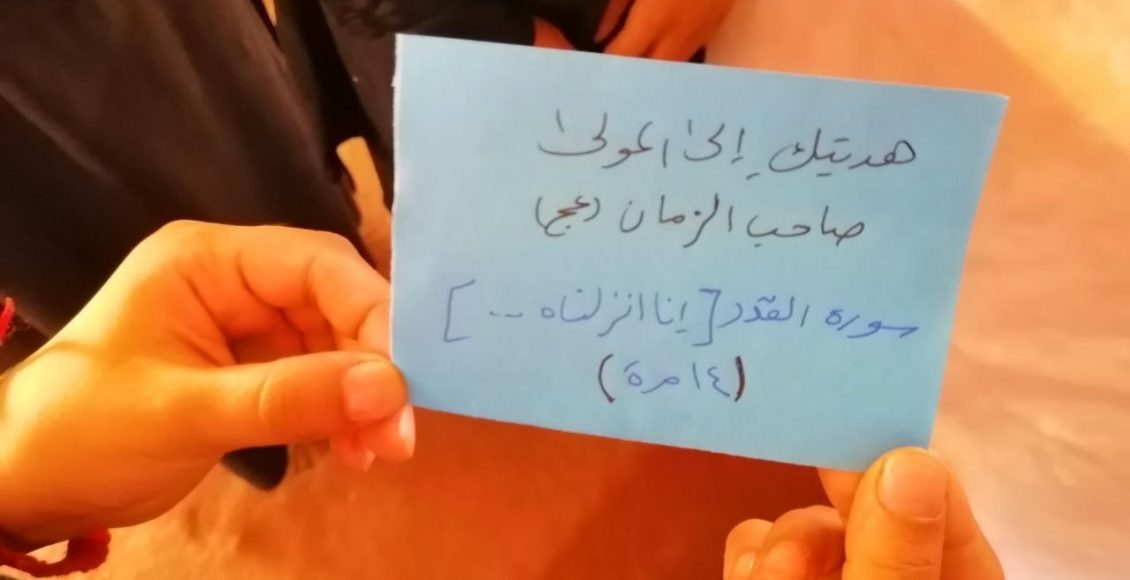 هديتك إلى المولى
صاحب الزمان (عج)
سورة القدر [إنا انزلناه ...]
(١٤ مرة)